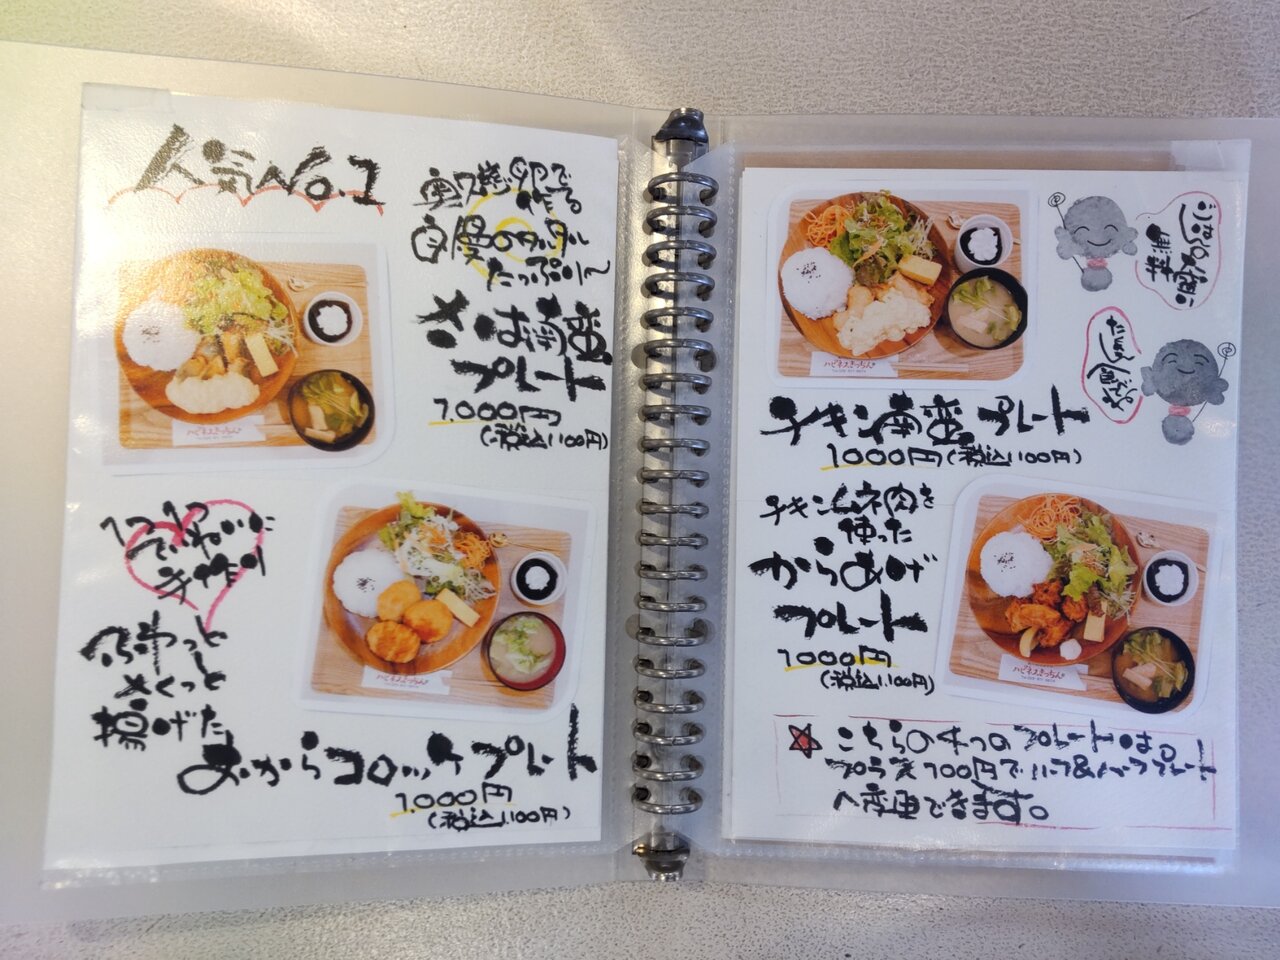 人気No.1
奥久慈卵で
作る
自慢のタルタル
たっぷり〜
さば南蛮
プレート
1.000円
(税込1.100円)
1つ1つ
ていねいに
手作り
ふわっと
さくっと
揚げた
おからコロッケプレート
1.000円
(税込1.100円)
チキン南蛮プレート
1000円(税込1.100円)
チキンムネ肉を
使った
からあげ
プレート
1000円
(税込1.100円)
こちらの4つのプレートは。
プラス100円でハーフ&ハーフプレート
へ変更できます。
ハピネスきっちん
ハピネスきっちん
ハピネスきっちん
ハピネスきっちん